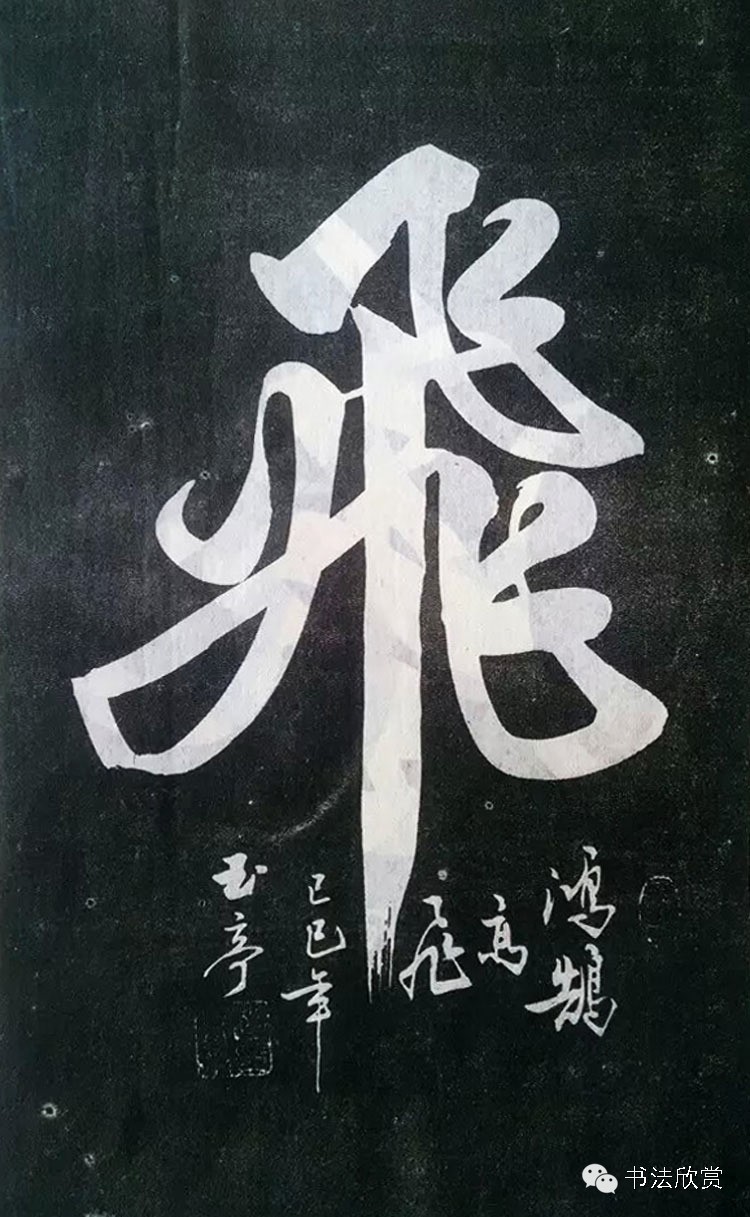 飛
鸿鹄
高
飛
己巳年
玉亭
书法欣赏